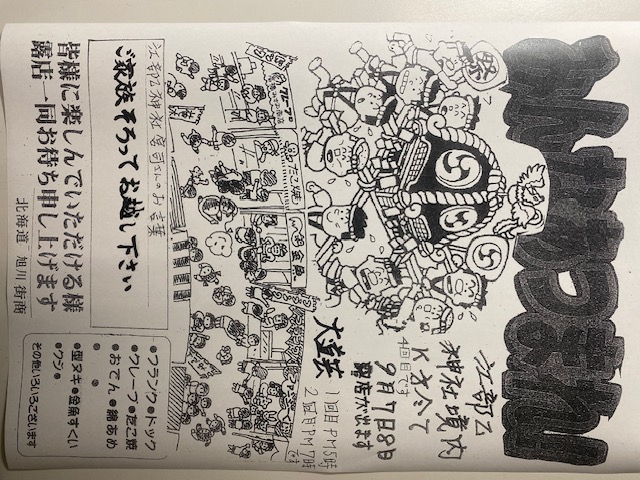 みんなあつまれ!!
祭
江部乙
神社境内
4回目です
9月7日8日
露店が出ます
1回目PM5時
2回目PM7時
です
江部乙神社宮司さんのお言葉
ご家族そろってお越し下さい
皆様に楽しんでいただける様
露店一同お待ち申し上げます
北海道 旭川街商
●フランク●ドック
●クレープ●たこ焼
●おでん●綿あめ
●型ヌキ●金魚すくい
●クジ●
その他いろいろございます